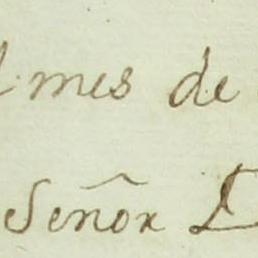 l mes de
Señor D